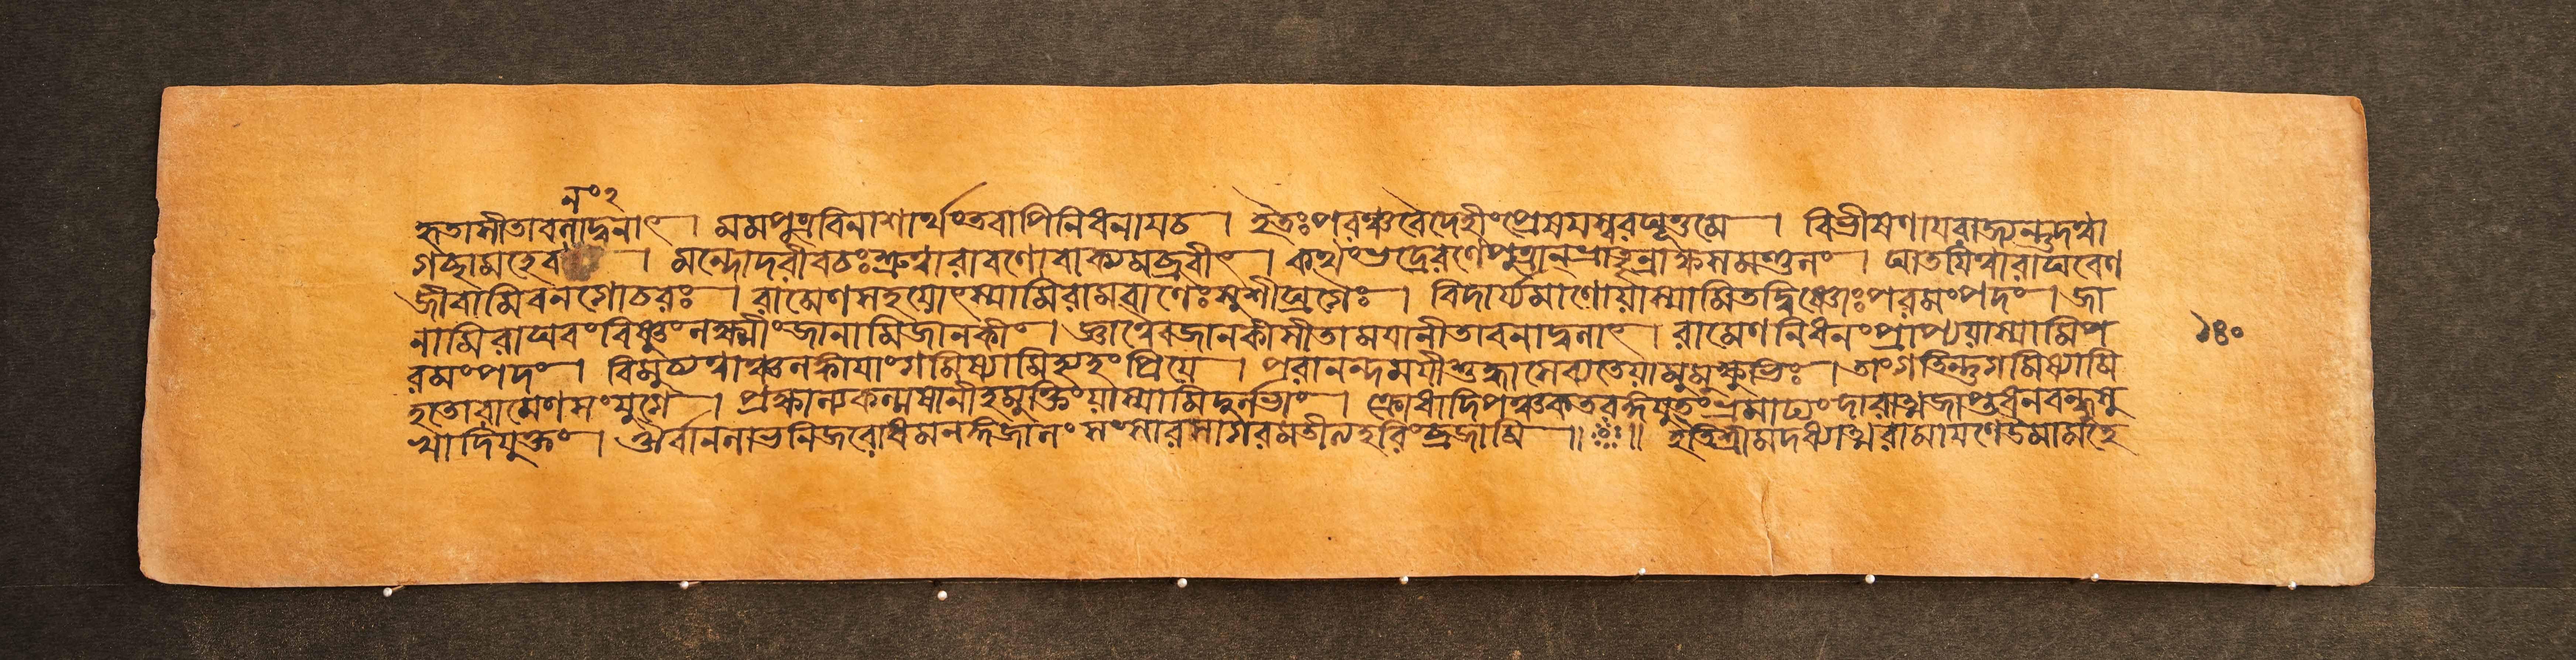 নং২
হৃতাসীতাবনাদ্বনাৎ । মমপুত্রবিনাশার্থংতবাপিনিধনায়চ । ইতঃপরঞ্চবৈদেহীংপ্রেষয়স্বরঘূত্তমে । বিভীষণায়রাজ্যন্তুদত্বা
গচ্ছামহেব । মন্দোদরীবচঃশ্রুত্বারাবণোবাক্যমব্রবীৎ । কথংভদ্রেরণেপুত্রান্ভ্রাতৄন্রাক্ষসমণ্ডলং । ঘাতয়িত্বারাঘবেণ
জীবামিবনগোচরঃ । রামেণসহযোৎস্যামিরামবাণৈঃসুশীঘ্রগৈঃ । বিদার্য্যমাণোযাস্যামিতদ্বিষ্ণোঃপরমংপদং । জা
নামিরাঘবংবিষ্ণুংলক্ষ্মীংজানামিজানকীং । জ্ঞাত্বৈবজানকীসীতাময়ানীতাবনাদ্বলাৎ । রামেণনিধনংপ্রাপ্যযাস্যামিপ ১৪০
রমংপদং । বিমুচ্যত্বাঞ্চলঙ্কায়াংগমিষ্যামিহ্যহংপ্রিয়ে । পরানন্দময়ীশুদ্ধাসেব্যতেযামুমুক্ষুভিঃ । তাংগতিন্তুগমিষ্যামি
হতোরামেণসংযুগে । প্রক্ষাল্যকল্মষানীহমুক্তিংযাস্যামিদুর্লভাং । ক্লেশাদিপঞ্চকতরঙ্গযুতংভ্রমাঢ্যংদারাত্মজাপ্তধনবন্ধুঝ
ষাদিযুক্তং । ঔর্বানলাভনিজরোষমনঙ্গজালংসংসারসাগরমতীত্যহরিংব্রজামি ॥ ॥ ইতিশ্রীমদধ্যাত্মরামায়ণেউমামহে